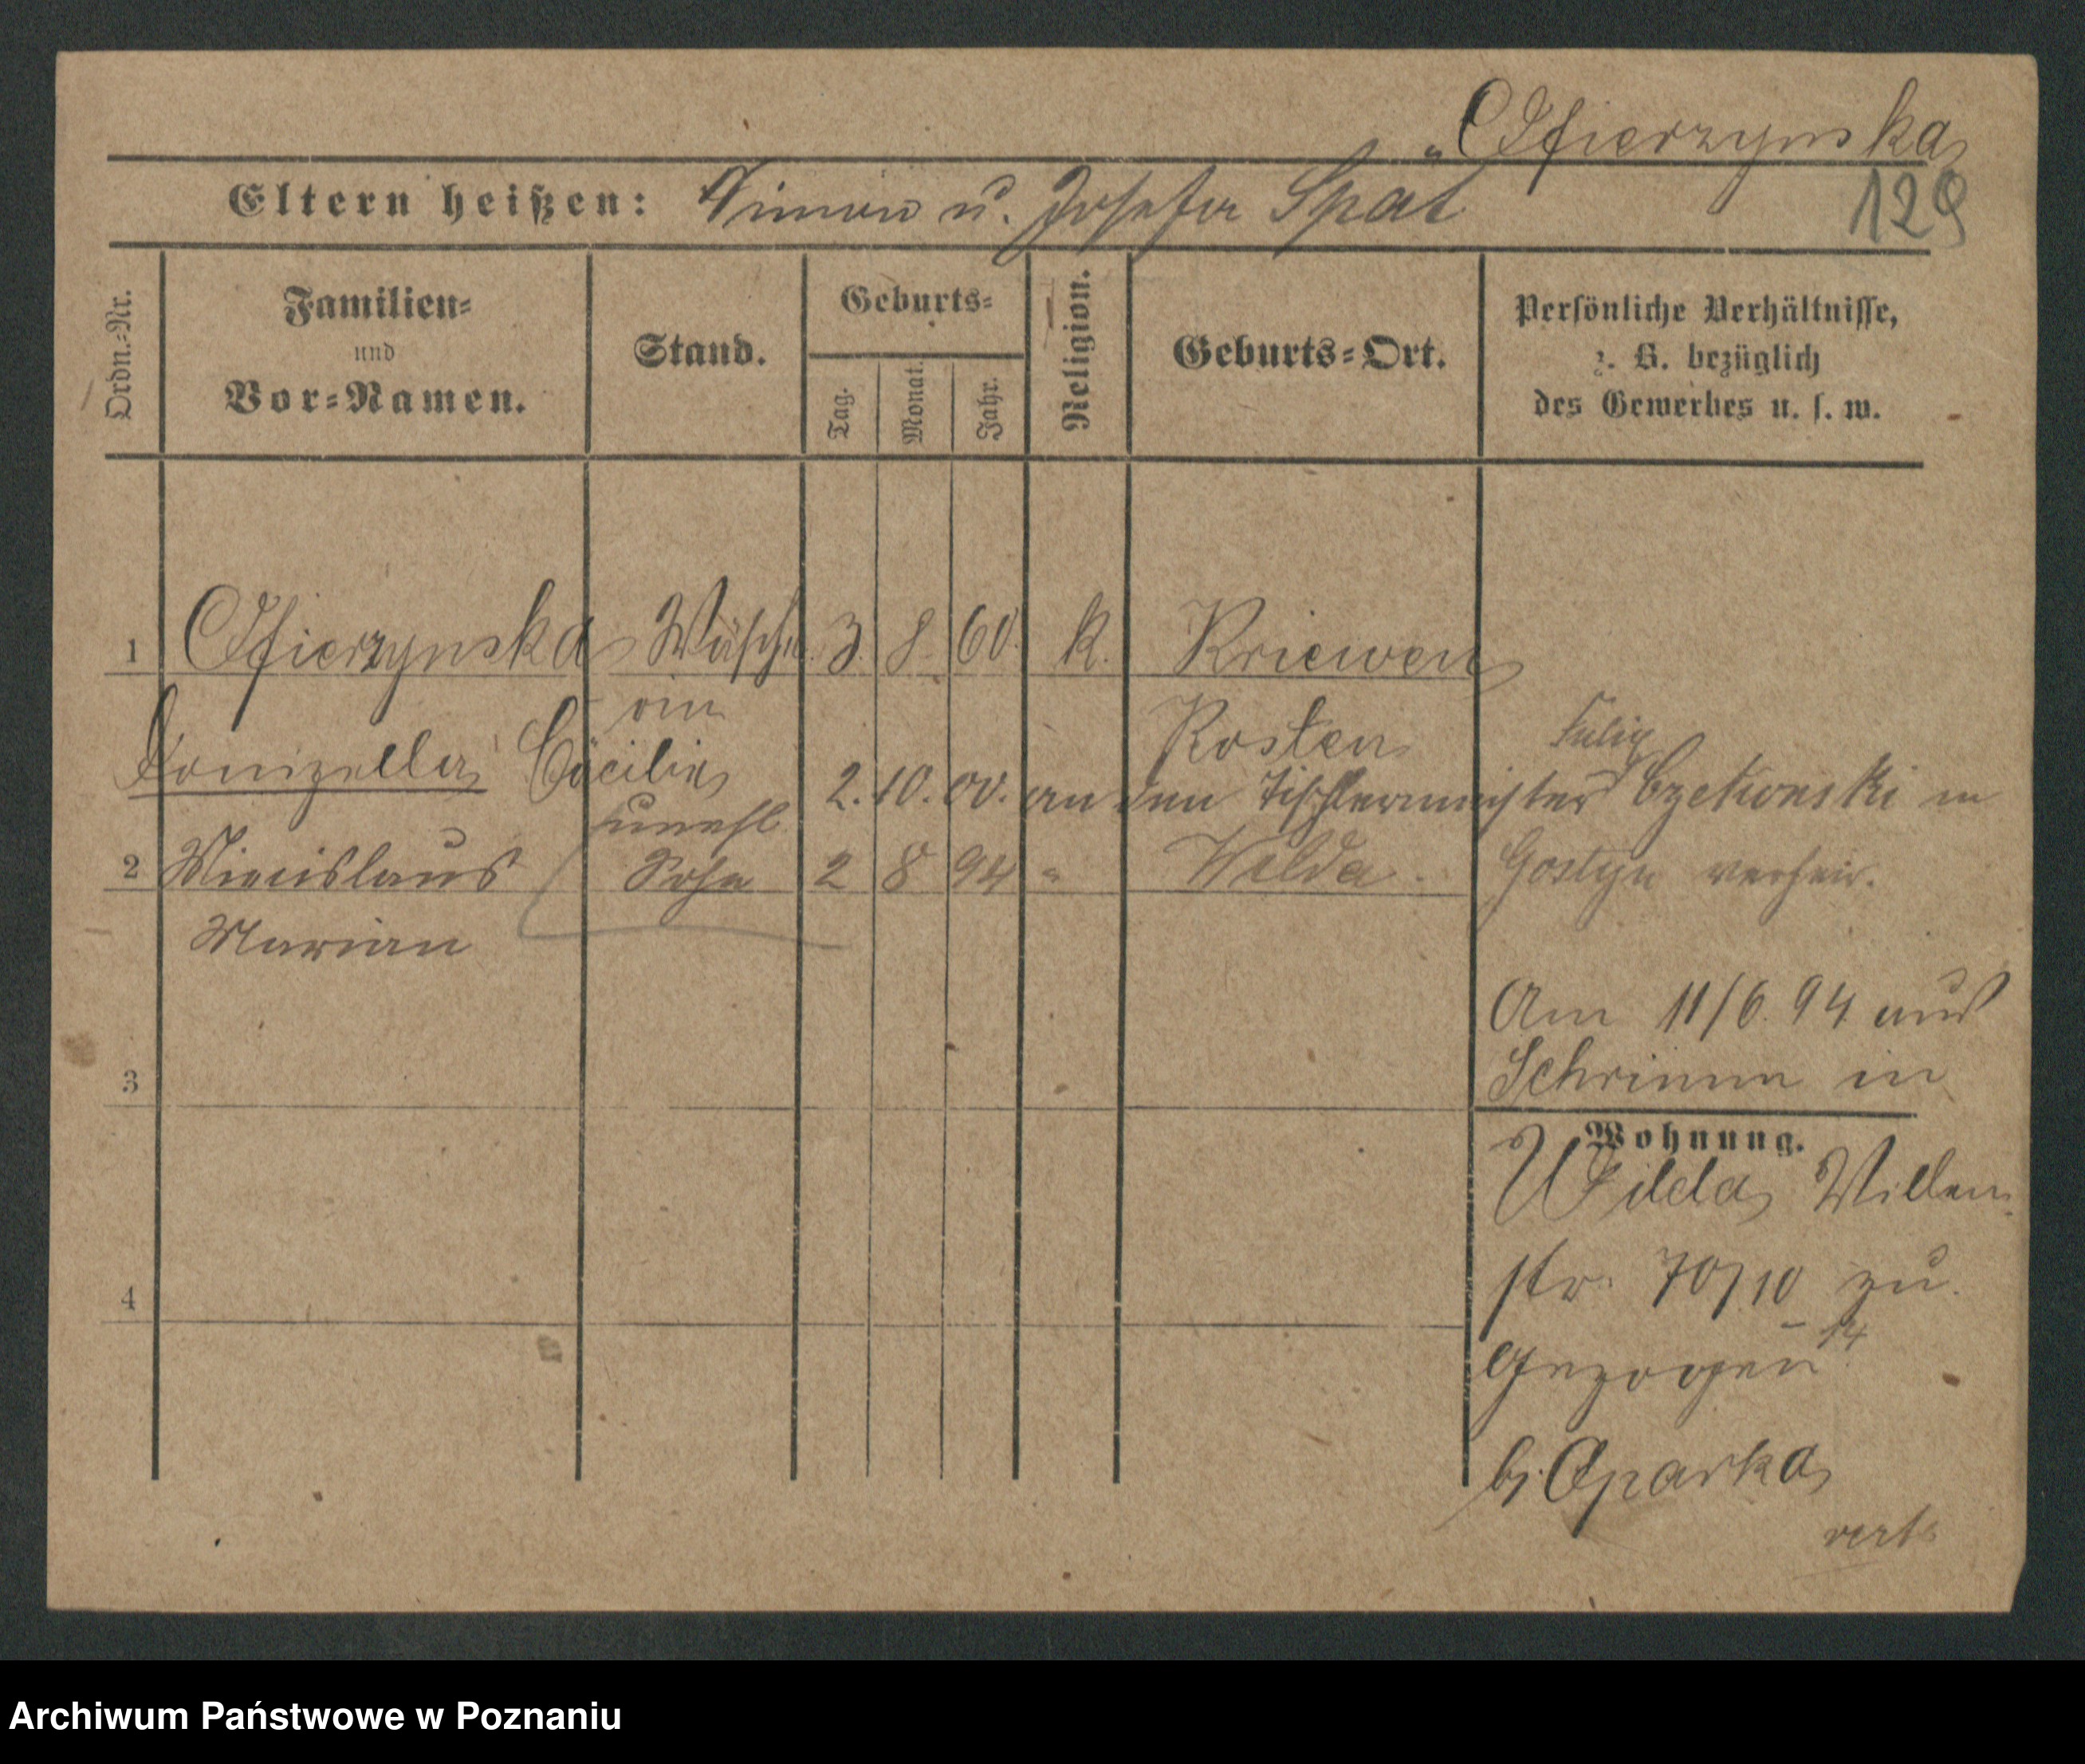 Ofierzynska
129
Eltern heißen: Simon u. Josefa Spat
Ordn.-Nr.
Familien-
und
Vor-Namen.
Stand.
Geburts-
Tag.
Monat.
Jahr.
Religion.
Geburts-Ort.
Persönliche Verhältnisse,
z. B. bezüglich
des Gewerbes u. s. w.
1 Ofierzynska Wäsche 3. 8. 60. k. Kriewen
rin
Kosten
Cäcilie
2. 10. 00. an den Tischlermeister Czekonski in
unehl.
2 Miecislaus Sohn 2 8 94 " Wilda. Gostyn verheir.
Marian
Am 11/6. 94 aus
Schrimm in
3
Wohnung.
Wilda, Villen
str. 70/10 zu
14
4
gezogen
b/ Oparka
Archiwum Państwowe w Poznaniu